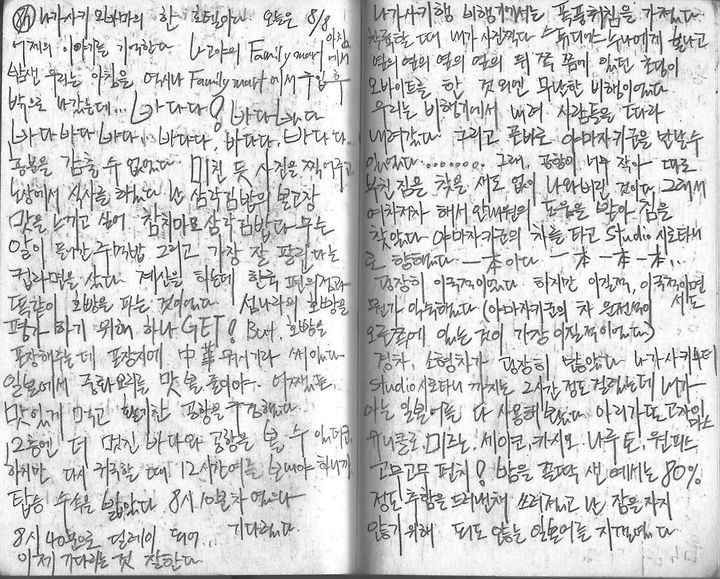 나가사키 오바마의 한 호텔이다. 오늘은 8/8
어제의 이야기를 기억한다 나고야의 Family mart 아침에서
밤샌 우리는 아침을 어서나 Family mart 에서 구입 후
밖으로 나갔는데... 바다다! 바다다
바다 바다 바다. 바다다. 바다다. 바다다..
흥분을 감출 수 없었다. 미친 듯 사진을 찍어주고
에서 식사를 하였다. 난 삼각김밥의 본고장
맛을 느끼고 싶어 참치마요 삼각김밥과 무슨
알이 들어간 주먹밥 그리고 가장 잘 팔린다는
컵라면을 샀다. 계산을 하는데 한국 편의점과
똑같이 호빵을 파는 것이었다 섬나라의 호빵을
평가 하기 위해 하나 GET! But, 호빵을
포장해주는데 포장지에 中華 뭐시기라 써있었다
일본에서 중화요리를 맛 볼 줄이야. 어쨌든
맛있게 먹고 활기찬 공항을 구경했다.
2층엔 더 멋진 바다와 공항을 볼 수 있었다
하지만 다시 귀국할 때 12시간여를 보내야 하니까
탑승 수속을 밟았다 8시 10분차 였으나
8시 40분으로 딜레이 되어.. 기다렸다
이제 기다리는 것 잘한다
나가사키행 비행기에서는 폭풍취침을 가졌다
착륙할 때 내가 사진찍다 스튜디어스 누나에게 혼나고
옆의 옆의 옆의 옆의 뒤 쪽 쯤에 있던 초딩이
오바이트를 한 것외엔 무난한 비행이었다
우리는 비행기에서 내려 사람들을 따라
내려갔다 그리고 곧바로 야마자키군을 만날 수
있었다........ 그래, 공항이 너무 작아 따로
부친 짐을 찾을 새도 없이 나와버린 것이다. 그래서
여차저차 해서 안내원의 도움을 받아 짐을
찾았다 야마자키군의 차를 타고 Studio 시로타니
로 향했다 一本이다 一本一本..
굉장히 이국적이었다 하지만 이질적, 이국적이면서도
뭔가 익숙했다 (야마자키군의 차 운전석이
오른쪽에 있는 것이 가장 이질적이었다)
경차, 소형차가 굉장히 많았다 나가사키에서
Studio 시로타니 까지는 2시간 정도 걸렸는데 내가
아는 일본어를 다 사용해 보았다 아리가또 고자이마스
유니클로, 미즈노, 세이코, 카시오, 나루토, 원피스
고무고무 펀치! 밤을 꼴딱 샌 예세는 80%
정도 추함을 드러낸채 쓰러졌고 난 잠을 자지
않기 위해 되도 않는 일본어를 지껄였다